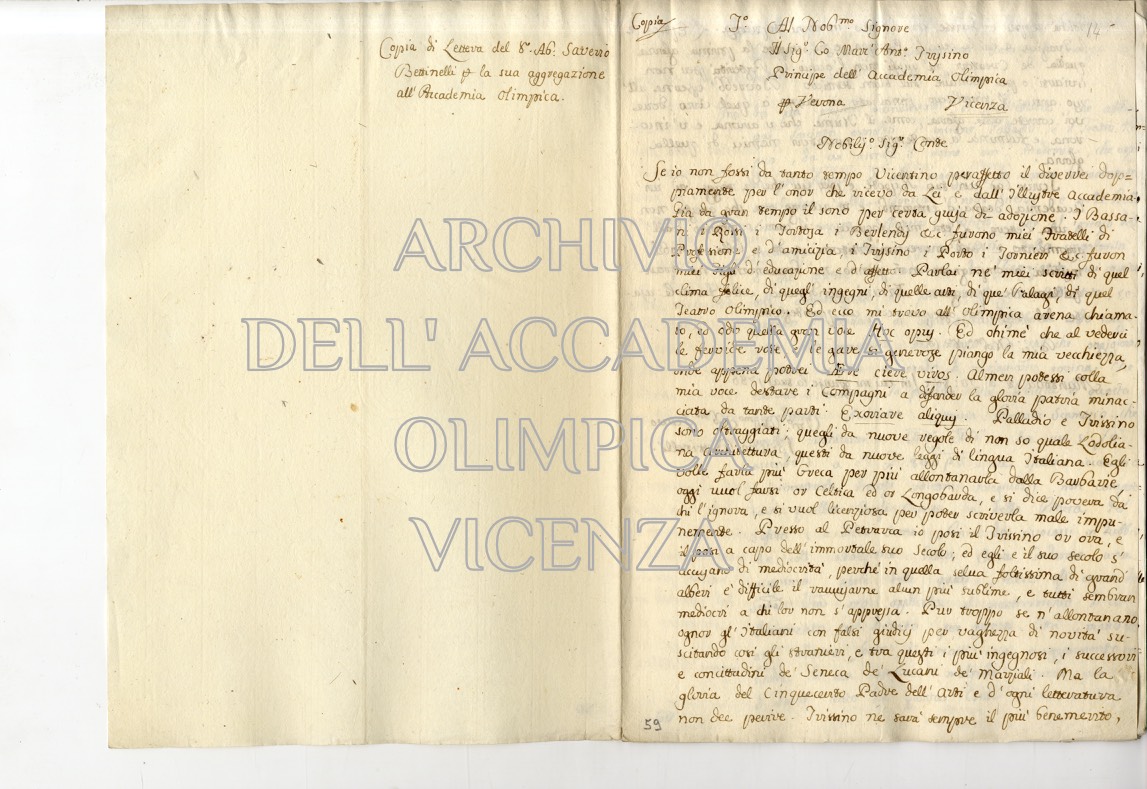 Coppia di Lettera del Sr. Ab: Saverio
Bettinelli p la sua aggregazione
all'Accademia Olimpica.
Coppia
14
Al Nobmo Signore
Il Sigr Co Marc' Anto Trissino
Principe dell'Accademia Olimpica
p Verona Vicenza
Sigr Conte
Se io non fossi da tanto tempo Vicentino per affetto il diverrei dop=
piamente per l'onor che ricevo da Lei e dall'Illustre Accademia
Già da gran tempo il sono per certa guisa di adozione. I Bassa-
ni i Rossi i Tortosa i Berlendis &c furono miei Fratelli di
Professione e d'amicizia, i Trissino i Porto i Tornieri &c furon
miei figli d'educazione e d'affetto. Parlai ne' miei scritti di quel
clima felice, di quegl'ingegni, di quelle arti, di que' Palagi, di quel
Teatro Olimpico. Ed ecco mi trovo all'Olimpica arena chiama-
to, ed odo quella gran voce Hoc opus. Ed ohimè che al vedervi
le fervide rote e le gare sì generose piango la mia vecchiezza,
onde appena potrei Ære ciere viros. Almen potessi colla
mia voce destare i Compagni a difender la gloria patria minac-
ciata da tante parti. Exoriare aliquis. Palladio e Trissino
sono oltraggiati; quegli da nuove regole di non so quale Lodolia-
na architettura questi da nuove leggi di lingua Italiana. Egli
volle farla più Greca per più allontanarla dalla Barbarie
oggi vuol farsi or Celtica ed or Longobarda, e si dice povera da
chi l'ignora, e si vuol licenziosa per poter scriverla male impu-
nemente. Presso al Petrarca io posi il Trissino or ora, e
il posi a capo dell'immortale suo Secolo; ed egli e il suo secolo s'
accusano di mediocrità, perchè in quella selva foltissima di grandi
alberi è difficile il ravvisarne alcun più sublime, e tutti sembran
mediocri a chi lor non s'appressa. Pur troppo se n'allontanano
ognor gl'Italiani con falsi giudicj per vaghezza di novità su-
scitando così gli stranieri, e tra questi i più ingegnosi, i successori
e concittadini de' Seneca de' Lucani de' Marziali. Ma la
gloria del Cinquecento Padre dell'Arti e d'ogni letteratura
non dee perire. Trissino ne sarà sempre il più benemerito,
59
ARCHIVIO
DELL'ACCADEMIA
OLIMPICA
VICENZA